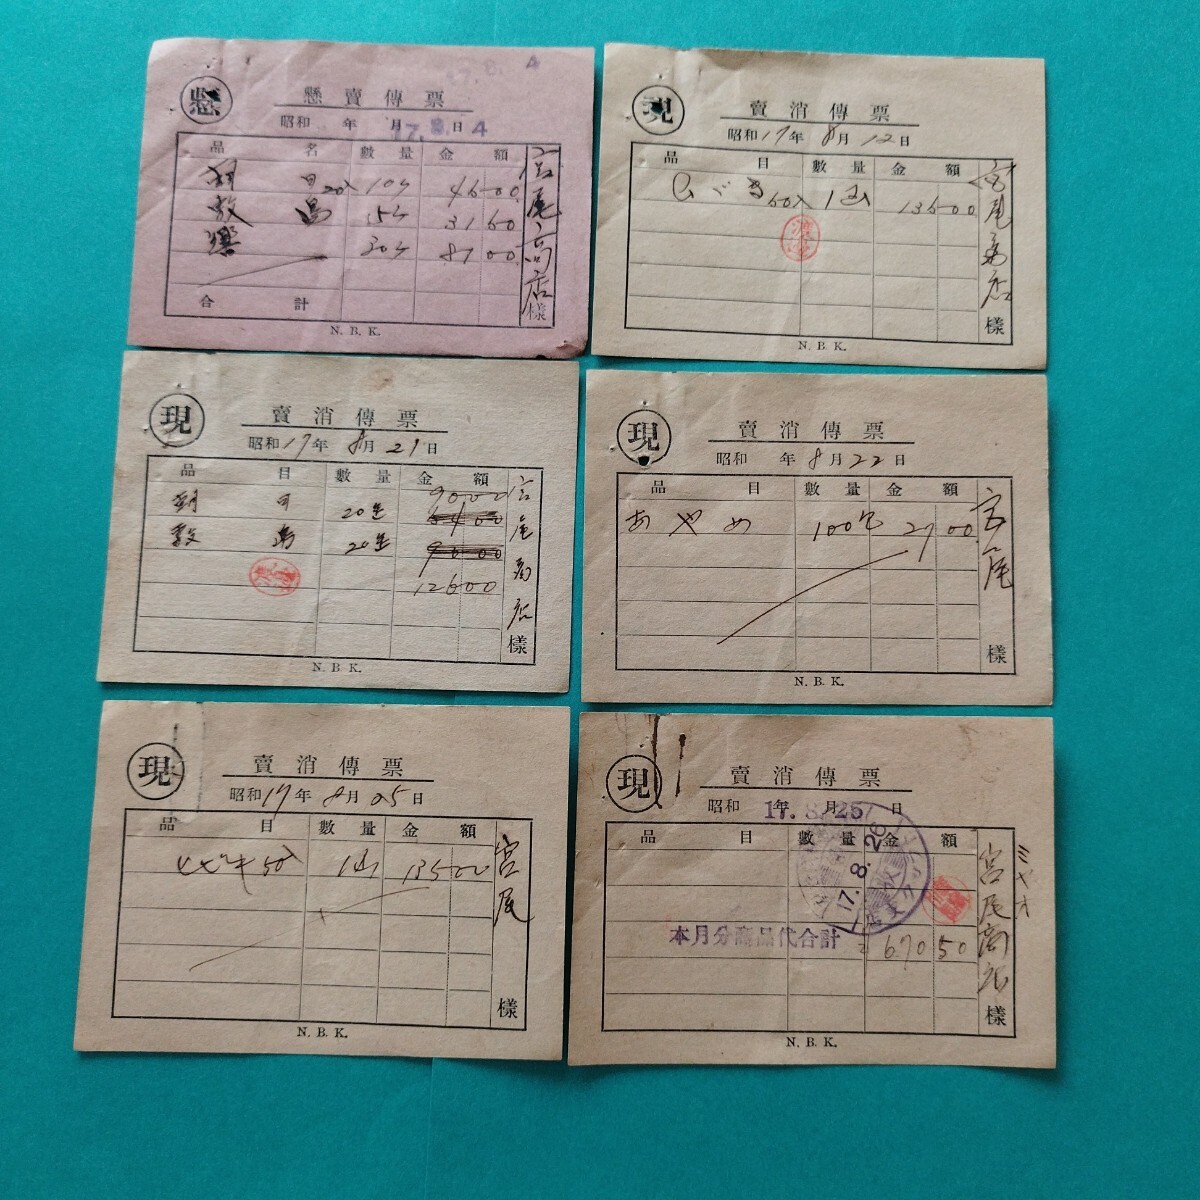 17. 8. 4
懸
懸賣傳票
昭和 年 月 日
17. 8. 4
品名 數量 金額
朝日 20入 46 00
敷島 31 60
譽 87 00
合計
宮尾商店様
N. B. K.
現
賣消傳票
昭和17年8月12日
品目 數量 金額
135 00
宮尾商店様
N. B. K.
現
賣消傳票
昭和17年8月21日
品目 數量 金額
朝日 20 90 00
敷島 20
126 00
宮尾商店様
N. B. K.
現
賣消傳票
昭和 年8月22日
品目 數量 金額
あやめ 100 27 00
宮尾様
N. B. K.
現
賣消傳票
昭和17年8月25日
品目 數量 金額
50入 135 00
宮尾様
N. B. K.
現
賣消傳票
昭和 年 月 日
17. 8. 25
品目 數量 金額
17. 8. 26
本月分商品代合計 670 50
ミヤオ
宮尾商店様
N. B. K.